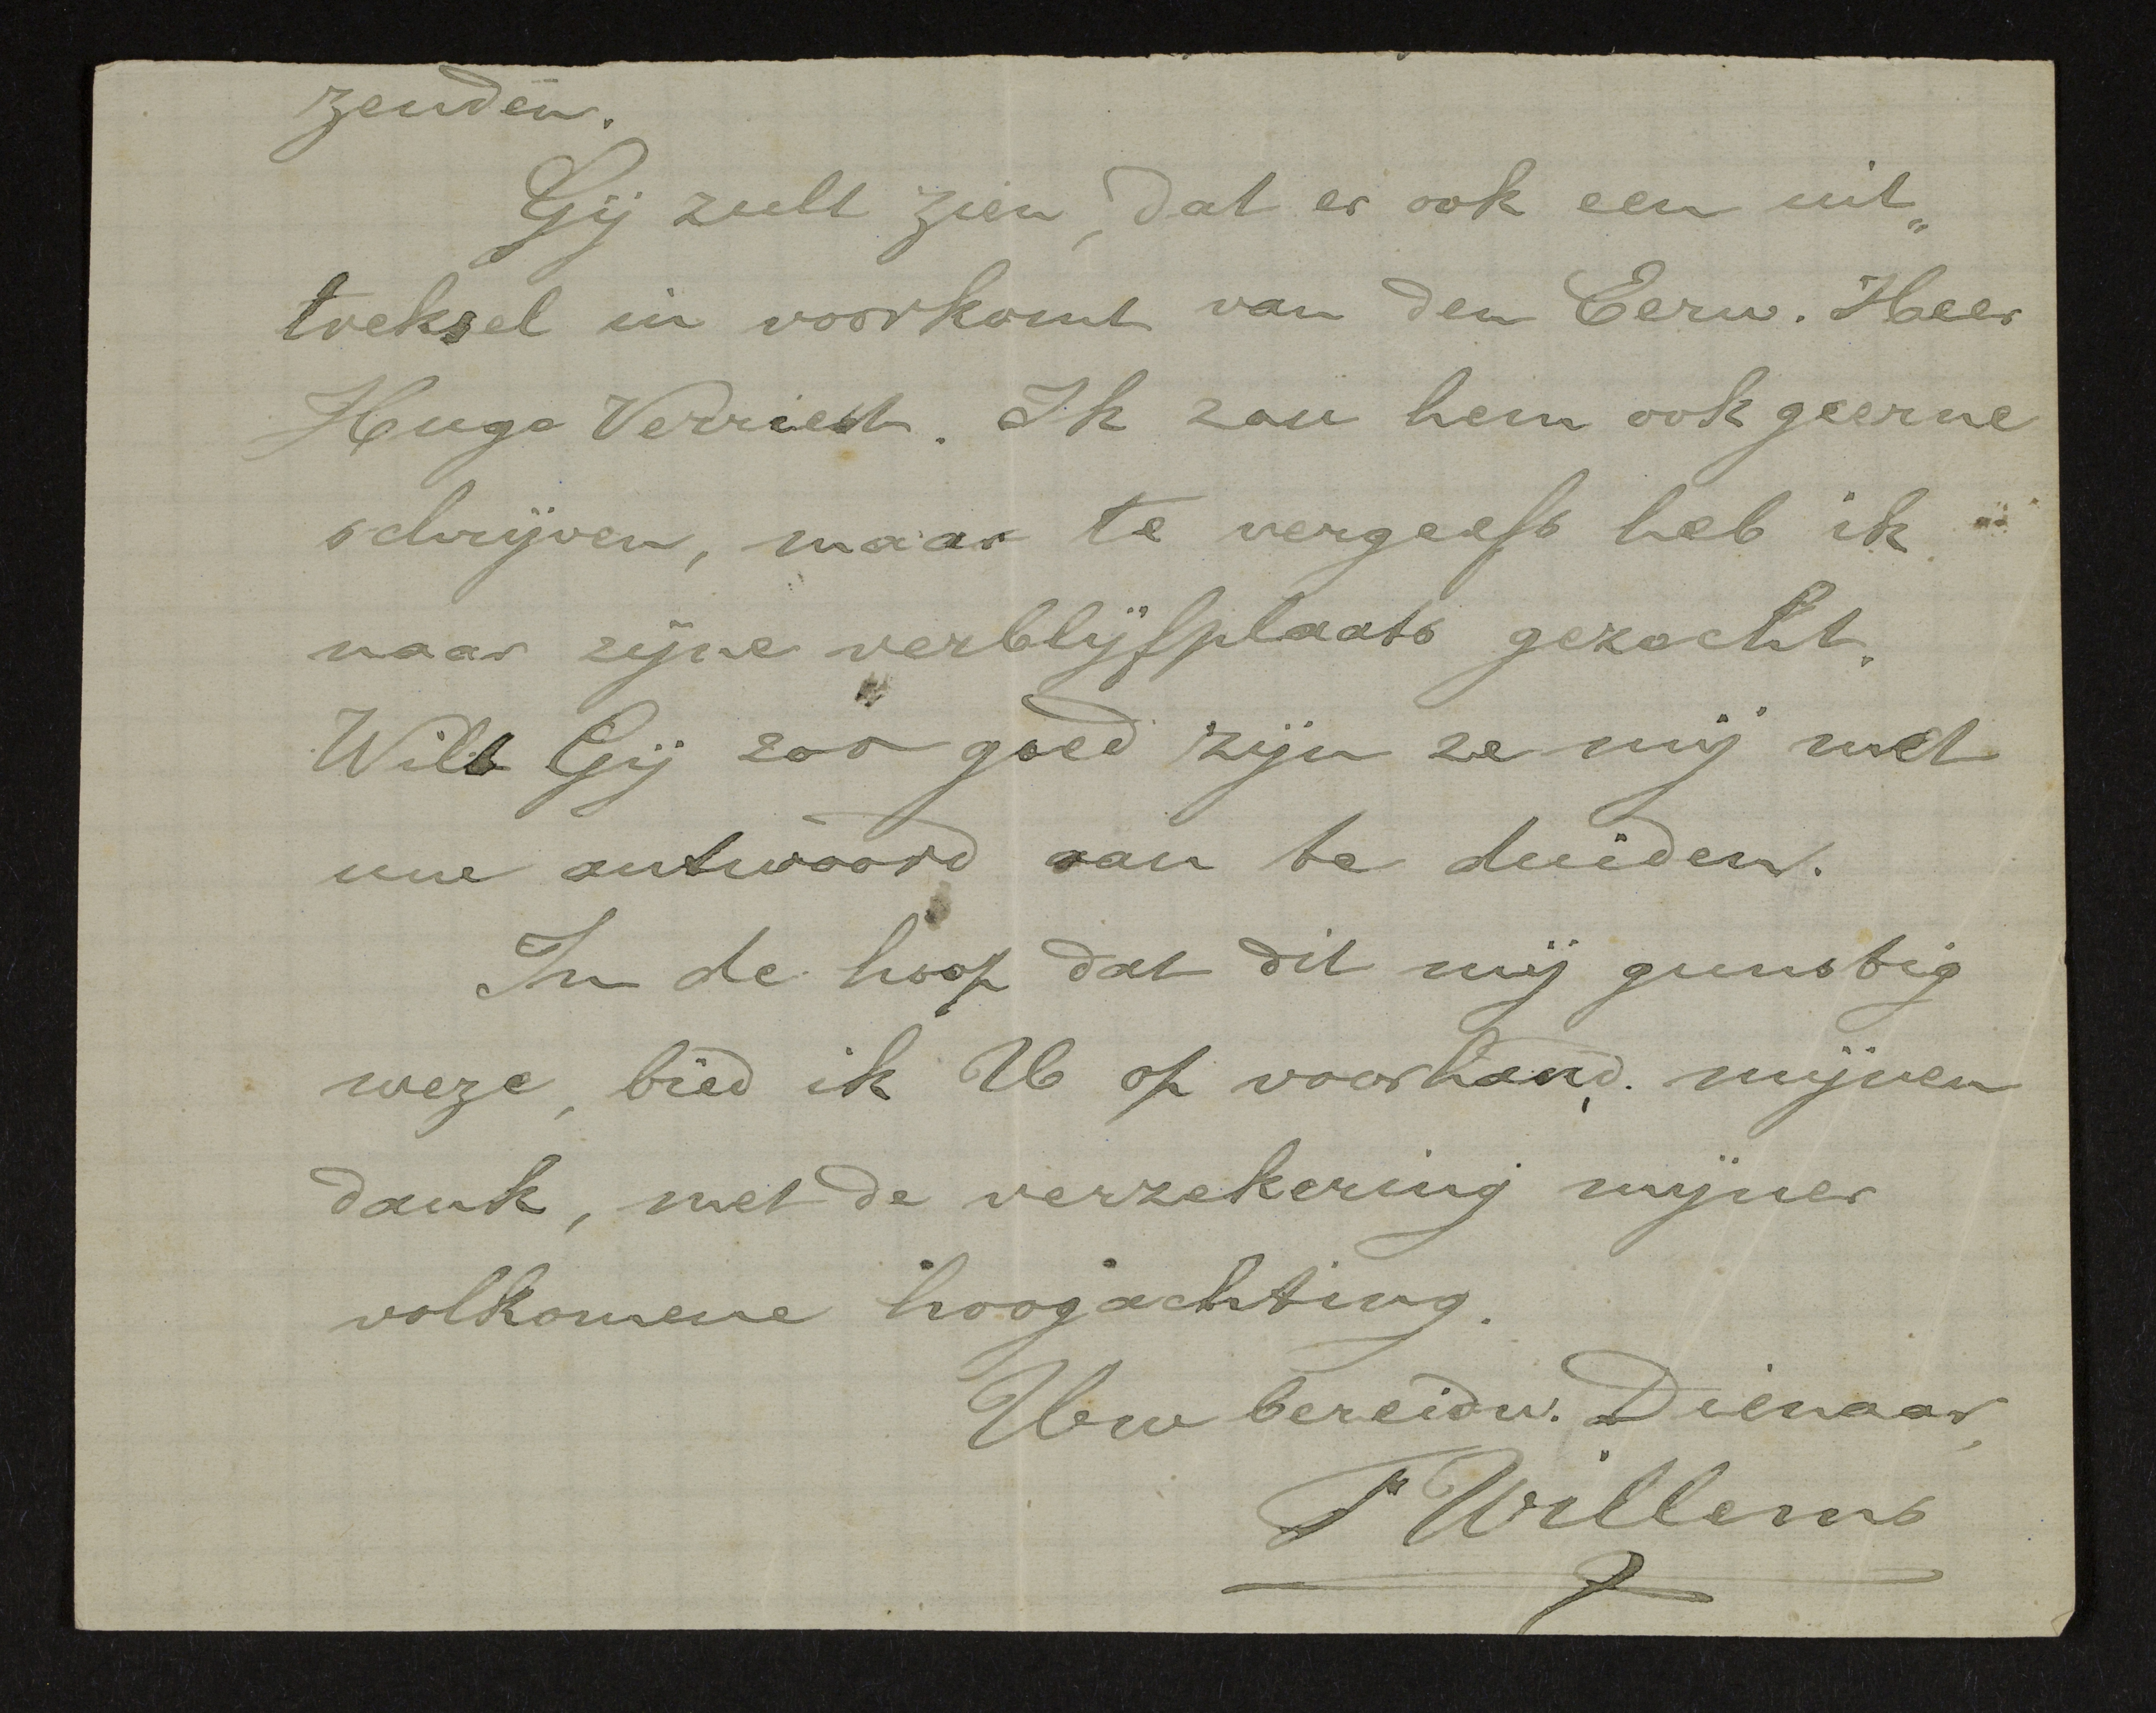 zenden.
Gij zult zien, dat er ook een uit„
treksel in voorkomt van den Eerw. Heer
Hugo Verriest. Ik zou hem ook geerne
schrijven, maar te vergeefs heb ik
naar zijne verblijfplaats gezocht.
Wilt Gij zoo goed zijn ze mij met
uwe antwoord aan te duiden.
In de hoop dat dit mij gunstig
weze, bied ik U op voorhand. mijnen
dank, met de verzekering mijner
volkomene hoogachting.
Uw bereidw. Dienaar,
P Willems